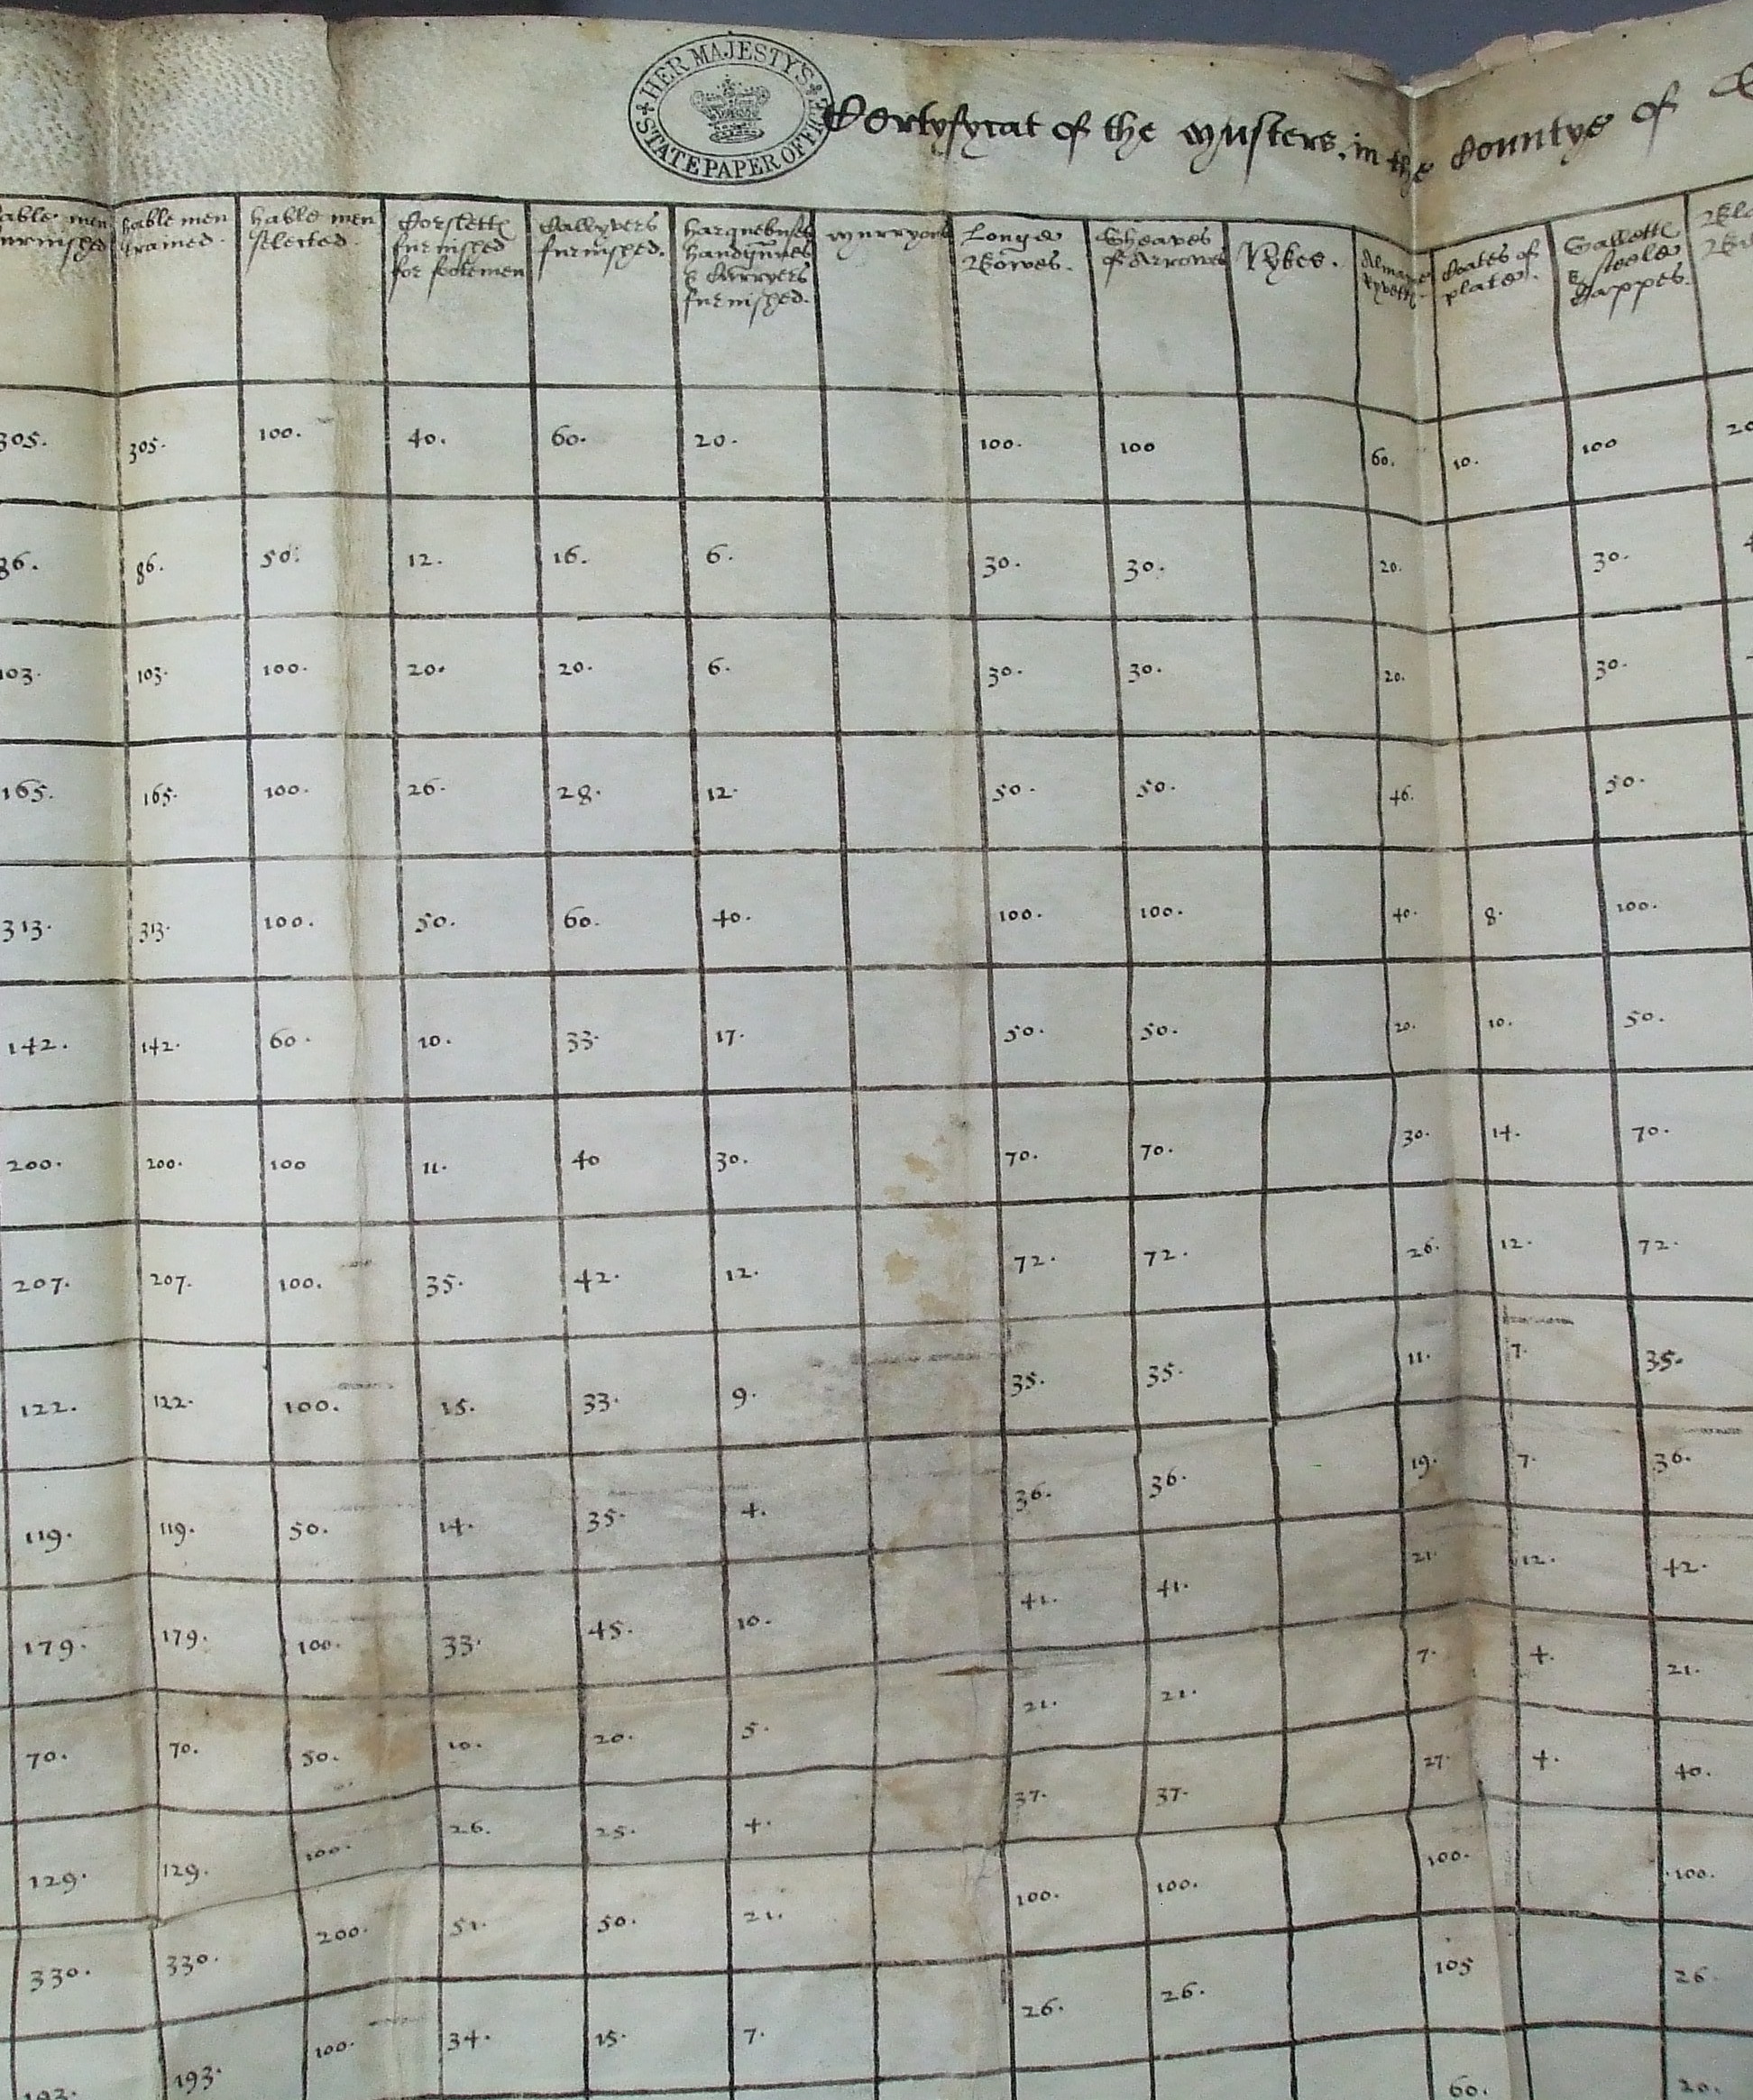 HER MAJESTY'S STATE PAPER OFFICE
Certyfycat of the Musters, in the Countye of
hable men trained. hable men selected. Corslett furnished for footemen Callyvers furnished. Harquebuses handgunnes & Curryers furnished. Murryons Longe Bowes. Sheaves of Arrowes Pykes. Almane Ryvett Coates of plate. Sallett & steele Cappes.
305. 305. 100. 40. 60. 20. 100. 100 60. 10. 100 20
86. 86. 50. 12. 16. 6. 30. 30. 20. 30.
103. 103. 100. 20. 20. 6. 30. 30. 20. 30.
165. 165. 100. 26. 28. 12. 50. 50. 46. 50.
313. 313. 100. 50. 60. 40. 100. 100. 40. 8. 100.
142. 142. 60. 10. 33. 17. 50. 50. 20. 10. 50.
200. 200. 100 11. 40 30. 70. 70. 30. 14. 70.
207. 207. 100. 35. 42. 12. 72. 72. 26. 12. 72.
122. 122. 100. 15. 33. 9. 35. 35. 11. 7. 35.
119. 119. 50. 14. 35. 4. 36. 36. 19. 7. 36.
179. 179. 100. 33. 45. 10. 41. 41. 21. 12. 42.
70. 70. 50. 10. 20. 5. 21. 21. 7. 4. 21.
129. 129. 100. 26. 25. 4. 37. 37. 27. 4. 40.
330. 330. 200. 51. 50. 21. 100. 100. 100. 100.
193. 193. 100. 34. 15. 7. 26. 26. 105 26.
60. 20.